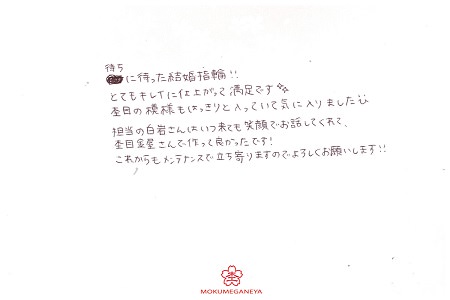 待ち
に待った結婚指輪!!
とてもキレイに仕上がって満足です
杢目の模様もはっきりと入っていて気に入りました
担当の白岩さんはいつ来ても笑顔でお話してくれて、
杢目金屋さんで作って良かったです!
これからもメンテナンスで立ち寄りますのでよろしくお願いします!!
MOKUMEGANEYA